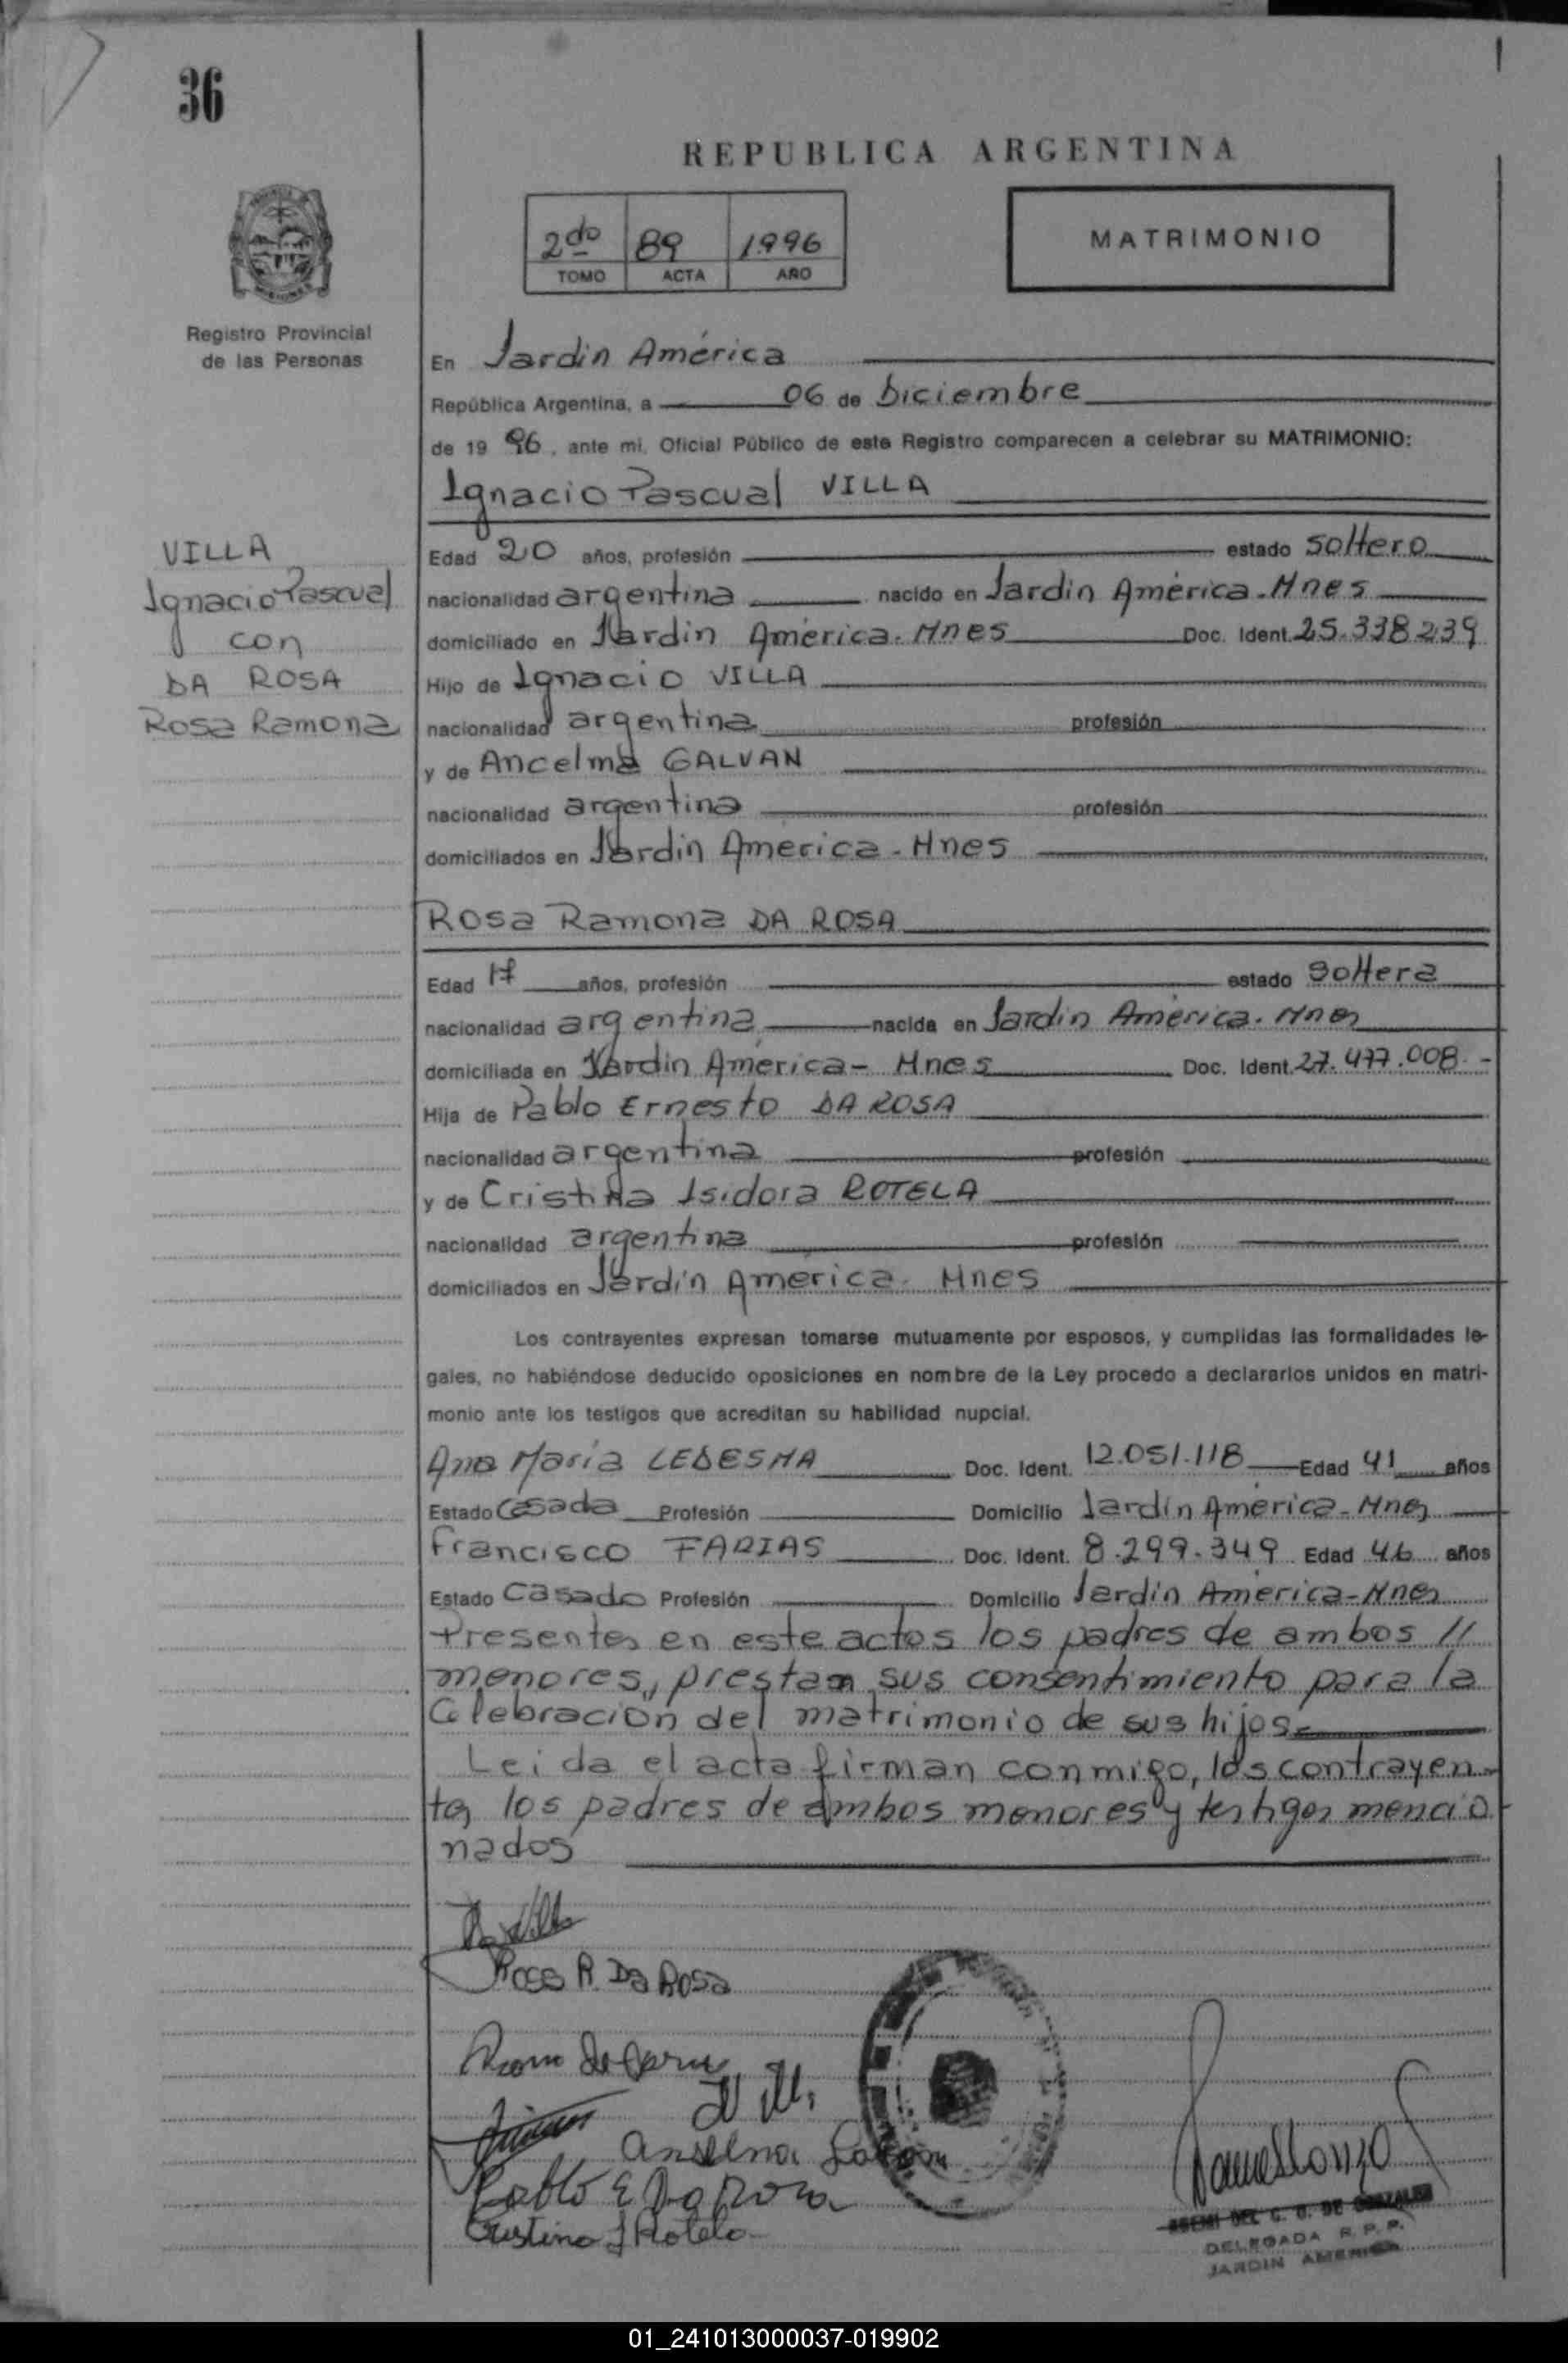 36
REPUBLICA ARGENTINA
2do 89 1996
TOMO ACTA AÑO
MATRIMONIO
Registro Provincial
de las Personas
En Jardin América
República Argentina, a 06 de Diciembre
de 19 96, ante mi, Oficial Público de este Registro comparecen a celebrar su MATRIMONIO:
Ignacio Pascual VILLA
VILLA
Ignacio Pascual
con
DA ROSA
Rosa Ramona
Edad 20 años, profesión estado soltero
nacionalidad argentina nacido en Jardin América. Mnes
domiciliado en Jardin América. Mnes Doc. Ident. 25.338.239
Hijo de Ignacio VILLA
nacionalidad argentina profesión
y de Ancelma GALVAN
nacionalidad argentina profesión
domiciliados en Jardin América - Mnes
Rosa Ramona DA ROSA
Edad 17 años, profesión estado soltera
nacionalidad argentina nacida en Jardin América. Mnes
domiciliada en Jardin América - Mnes Doc. Ident. 27.477.008.-
Hija de Pablo Ernesto DA ROSA
nacionalidad argentina profesión
y de Cristina Isidora ROTELA
nacionalidad argentina profesión
domiciliados en Jardin América. Mnes
Los contrayentes expresan tomarse mutuamente por esposos, y cumplidas las formalidades le-
gales, no habiéndose deducido oposiciones en nombre de la Ley procedo a declararlos unidos en matri-
monio ante los testigos que acreditan su habilidad nupcial.
Ana María LEDESMA Doc. Ident. 12.051.118 Edad 41 años
Estado Casada Profesión Domicilio Jardin América - Mnes
Francisco FARIAS Doc. Ident. 8.299.349 Edad 46 años
Estado Casado Profesión Domicilio Jardin América - Mnes
Presentes en este actos los padres de ambos //
menores, prestan sus consentimiento para la
Celebracion del matrimonio de sus hijos.-
Leida el acta firman conmigo, los contrayen-
tes los padres de ambos menores y testigos mencio
nados
Villa
Rosa R. Da Rosa
Anselma
Pablo E Da Rosa
Cristina I Rotela
DEL C. G. DE GONZALES
DELEGADA R. P. P.
JARDIN AMERICA
01_241013000037-019902